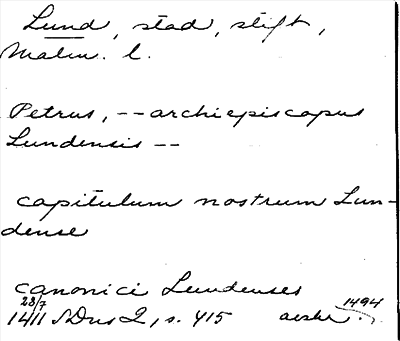 Lund, stad, stift,
Malm. l.
Petrus, -- archiepiscopus
Lundensis --
capitulum nostrum Lun-
dense
canonici Lundenses
28/7 1494
1411 SDns 2, s. 415